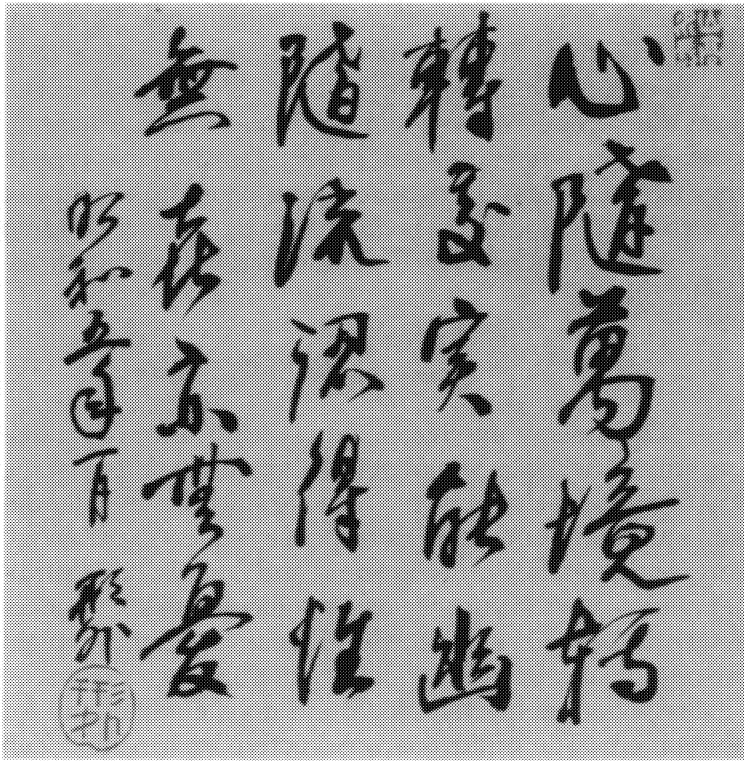 心隨萬境轉
轉處実能幽
隨流認得性
無喜亦無憂
昭和五年一月 形外